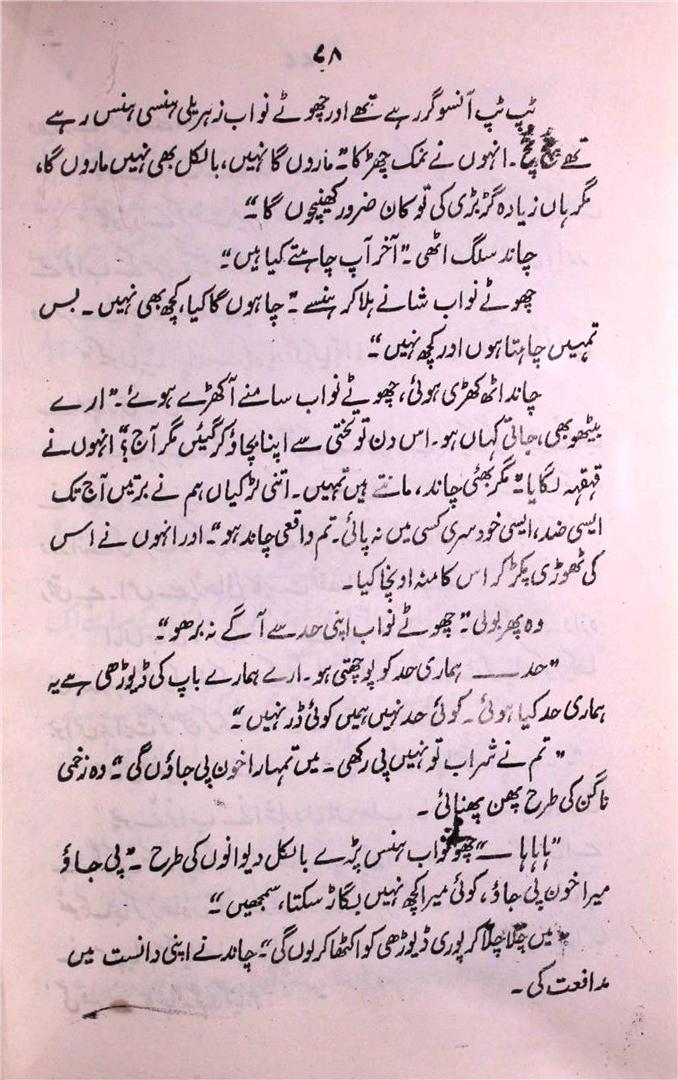 ۶۸
ٹپ ٹپ آنسو گر رہے تھے اور چھوٹے نواب زہریلی ہنسی ہنس رہے
تھے۔ انہوں نے نمک چھڑکا۔ "ماروں گا نہیں، بالکل بھی نہیں ماروں گا،
مگر ہاں زیادہ گڑبڑ کی تو کان ضرور کھینچوں گا۔"
چاند سلگ اٹھی۔ "آخر آپ چاہتے کیا ہیں"
چھوٹے نواب شانے ہلا کر ہنسے۔ "چاہوں گا کیا، کچھ بھی نہیں۔ بس
تمہیں چاہتا ہوں اور کچھ نہیں"
چاند اٹھ کھڑی ہوئی، چھوٹے نواب سامنے آ کھڑے ہوئے۔ "ارے
بیٹھو بھی، جاتی کہاں ہو۔ اس دن تو سختی سے اپنا بچاؤ کر گئیں مگر آج؟" انہوں نے
قہقہہ لگایا "مگر بھئی چاند، مانتے ہیں تمہیں۔ اتنی لڑکیاں ہم نے برتیں آج تک
ایسی ضد، ایسی خود سری کسی میں نہ پائی۔ تم واقعی چاند ہو"۔ اور انہوں نے اس
کی ٹھوڑی پکڑ کر اس کا منہ اونچا کیا۔
وہ پھر بولی "چھوٹے نواب اپنی حد سے آگے نہ بڑھو"۔
"حد ـــــ ہماری حد کو پوچھتی ہو۔ ارے ہمارے باپ کی ڈیوڑھی ہے یہ
ہماری حد کیا ہوئی۔ کوئی حد نہیں ہمیں کوئی ڈر نہیں"
"تم نے شراب تو نہیں پی رکھی۔ میں تمہارا خون پی جاؤں گی" وہ زخمی
ناگن کی طرح پھن پھنائی۔
"ہاہاہا ـــ" چھوٹے نواب ہنس پڑے بالکل دیوانوں کی طرح۔ "پی جاؤ
میرا خون پی جاؤ، کوئی میرا کچھ نہیں بگاڑ سکتا، سمجھیں"
"میں چلّا چلّا کر پوری ڈیوڑھی کو اکٹھا کر لوں گی"۔ چاند نے اپنی دانست میں
مدافعت کی۔